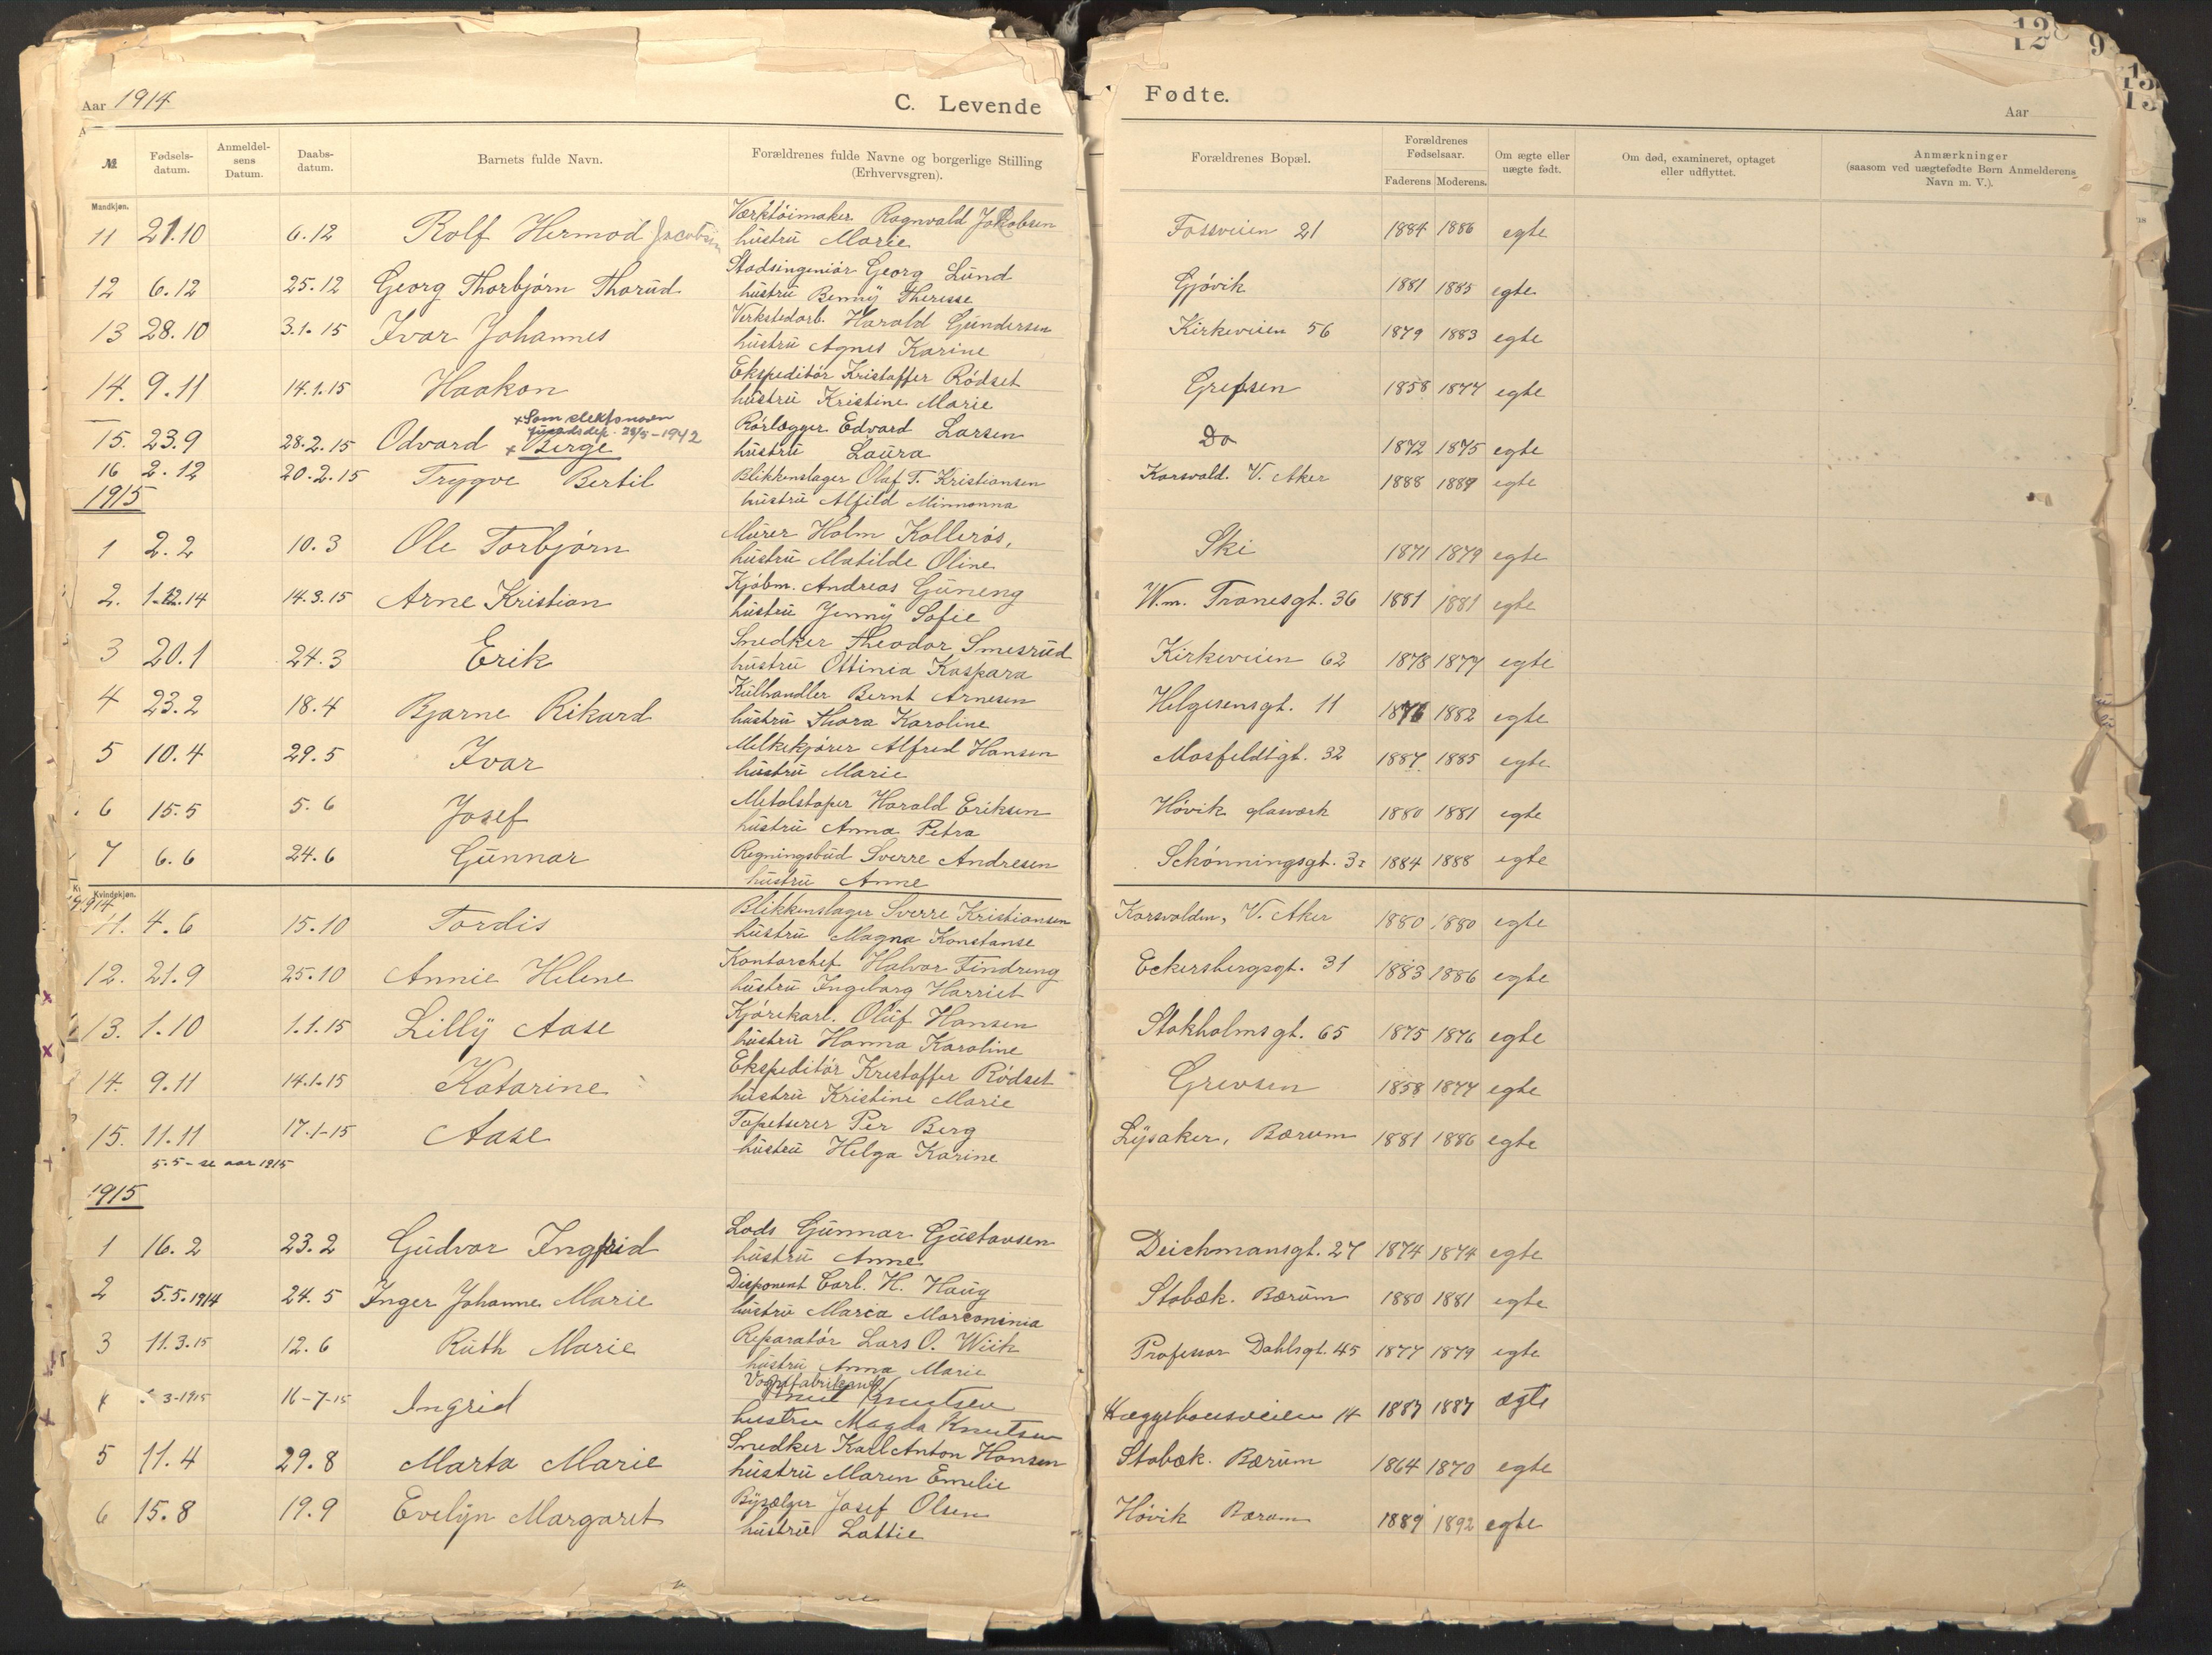 Aar 1914
C. Levende
Fødte.
Aar
№
Fødsels-
datum.
Anmeldel-
sens
Datum.
Daabs-
datum.
Barnets fulde Navn.
Forældrenes fulde Navne og borgerlige Stilling
(Erhvervsgren).
Forældrenes Bopæl.
Forældrenes
Fødselsaar.
Faderens Moderens.
Om ægte eller
uægte født.
Om død, examineret, optaget
eller udflyttet.
Anmærkninger
(saasom ved uægtefødte Børn Anmelderens
Navn m. V.).
Mandkjøn.
11 21.10 6.12 Rolf Hermod Jacobsen Værktøimaker Ragnvald Jakobsen Fossveien 21 1884 1886 egte
hustru Marie
12 6.12 25.12 Georg Thorbjørn Thorud Stadsingeniør Georg Lund Gjøvik 1881 1885 egte
hustru Benny Theresse
13 28.10 3.1.15 Ivar Johannes Verkstedarb. Harald Gundersen Kirkeveien 56 1879 1883 egte
hustru Agnes Karine
14. 9.11 14.1.15 Haakon Ekspeditør Kristoffer Rødset Grefsen 1858 1877 egte
hustru Kristine Marie
x Som slektsnavn
Justdsdep. 28/5-1942
15. 23.9 28.2.15 Odvard x Berge Rørlægger Edvard Larsen Do 1872 1875 egte
hustru Laura
16 2.12 20.2.15 Trygve Bertil Blikkenslager Olaf T. Kristiansen Korsvold. V. Aker 1888 1889 egte
hustru Alfild Minnonna
1915
1 2.2 10.3 Ole Torbjørn Murer Holm Kollerøs, Ski 1871 1879 egte
hustru Matilde Oline
2. 1.12.14 14.3.15 Arne Kristian Kjøbm. Andreas Guneng W.m. Tranesgt. 36 1881 1881 egte
hustru Jenny Sofie
3 20.1 24.3 Erik Snedker Theodor Smesrud Kirkeveien 62 1878 1877 egte
hustru Ottinia Kaspara
4 23.2 18.4 Bjarne Rikard Kulhandler Bernt Arnesen Helgesensgt. 11 1876 1882 egte
hustru Thora Karoline
5 10.4 29.5 Ivar Melkekjører Alfred Hansen Mosfeldtgt. 32 1887 1885 egte
hustru Marie
6 15.5 5.6 Josef Metalstøper Harald Eriksen Høvik glasværk 1880 1881 egte
hustru Anna Petra
7 6.6 24.6 Gunnar Regningsbud Sverre Andresen Schønningsgt. 32 1884 1888 egte
hustru Anne
Kvindekjøn.
1914
11. 4.6 15.10 Tordis Blikkenslager Sverre Kristiansen Korsvolden, V. Aker 1880 1880 egte
hustru Magna Konstanse
12. 21.9 25.10 Annie Helene Kontorchef Halvor Findreng Eckersbergsgt. 31 1883 1886 egte
hustru Ingeborg Harriet
13. 1.10 1.1.15 Lilly Aase Kjørekarl. Oluf Hansen Stokholmsgt. 65 1875 1876 egte
hustru Hanna Karoline
14. 9.11 14.1.15 Katarine Ekspeditør Kristoffer Rødset Grevsen 1858 1877 egte
hustru Kristine Marie
15. 11.11 17.1-15 Aase Tapetserer Per Berg Lysaker, Bærum 1881 1886 egte
hustru Helga Karine
5.5 - se aar 1915
1915
1 16.2 23.2 Gudvor Ingfrid Lods Gunnar Gustavsen Deichmansgt. 27 1874 1874 egte
hustru Anne
2 5.5.1914 24.5 Inger Johanne Marie Disponent Carl. H. Haug Stabæk. Bærum 1880 1881 egte
hustru Maria Marconinia
3 11.3.15 12.6 Ruth Marie Reparatør Lars O. Wiik Professor Dahlsgt. 45 1877 1879 egte
hustru Anna Marie
Vognfabrikant
4 3-1915 16-7-15 Ingrid Knutsen Hæggehousveien 14 1887 1887 ægte
hustru Magda Knutsen
5 11.4 29.8 Marta Marie Snedker Karl Anton Hansen Stabæk. Bærum 1864 1870 egte
hustru Maren Emelie
6 15.8 19.9 Evelyn Margaret Bysælger Josef Olsen Høvik Bærum 1889 1892 egte
hustru Lottie